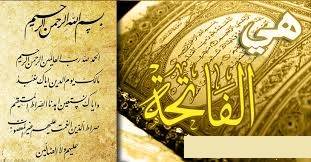 هي
الفاتحة
بسم الله الرحمن الرحيم
الحمد لله رب العالمين الرحمن الرحيم
مالك يوم الدين اياك نعبد
و اياك نستعين اهدنا الصراط المستقيم
صراط الذين انعمت عليهم غير المغضوب
عليهم ولا الضالين